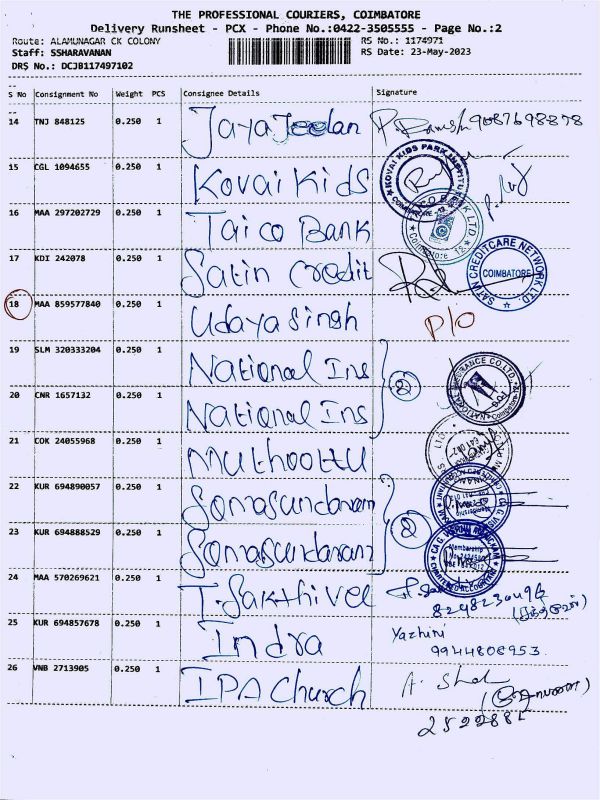 THE PROFESSIONAL COURIERS, COIMBATORE
Delivery Runsheet - PCX - Phone No.:0422-3505555 - Page No.:2
Route: ALAMUNAGAR CK COLONY RS No.: 1174971
Staff: SSHARAVANAN RS Date: 23-May-2023
DRS No.: DCJB117497102
S No Consignment No Weight PCS Consignee Details Signature
14 TNJ 848125 0.250 1 Jaya Jeelan 9087698878
15 CGL 1094655 0.250 1 Kovai Kids KOVAI KIDS PARK
16 MAA 297202729 0.250 1 Taico Bank
17 KDI 242078 0.250 1 Satin Credit SATIN CREDITCARE NETWORK LTD COIMBATORE
18 MAA 859577840 0.250 1 Udaya Singh P/O
19 SLM 320333204 0.250 1 National Ins
20 CNR 1657132 0.250 1 National Ins 2
21 COK 24055968 0.250 1 Muthoottu
22 KUR 694890057 0.250 1 Somasundaram
23 KUR 694888529 0.250 1 Somasundaram 2 CHARTERED ACCOUNTANT
24 MAA 570269621 0.250 1 T. Sakthivel
25 KUR 694857678 0.250 1 Indra Yazhini
9944806953
26 VNB 2713905 0.250 1 IPA Church